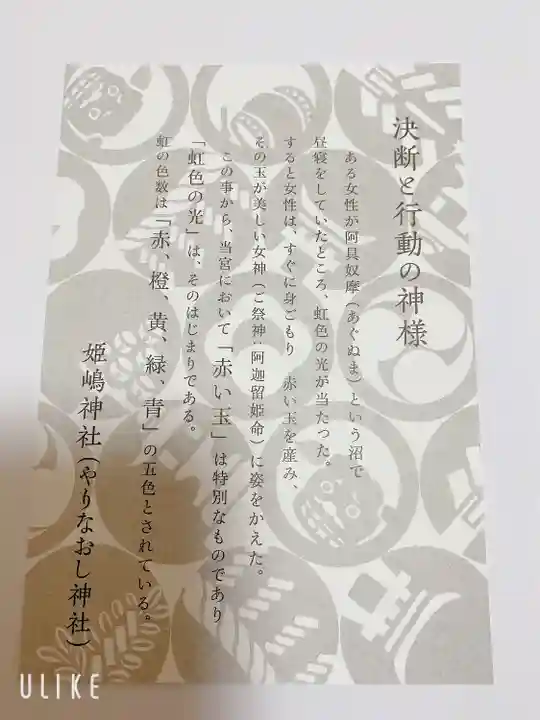 決断と行動の神様
ある女性が阿具奴摩（あぐぬま）という沼で
昼寝をしていたところ、虹色の光が当たった。
すると女性は、すぐに身ごもり　赤い玉を産み、
その玉が美しい女神（ご祭神：阿迦留姫命）に姿をかえた。
この事から、当宮において「赤い玉」は特別なものであり
「虹色の光」は、そのはじまりである。
虹の色数は「赤、橙、黄、緑、青」の五色とされている。
姫嶋神社（やりなおし神社）
ULIKE